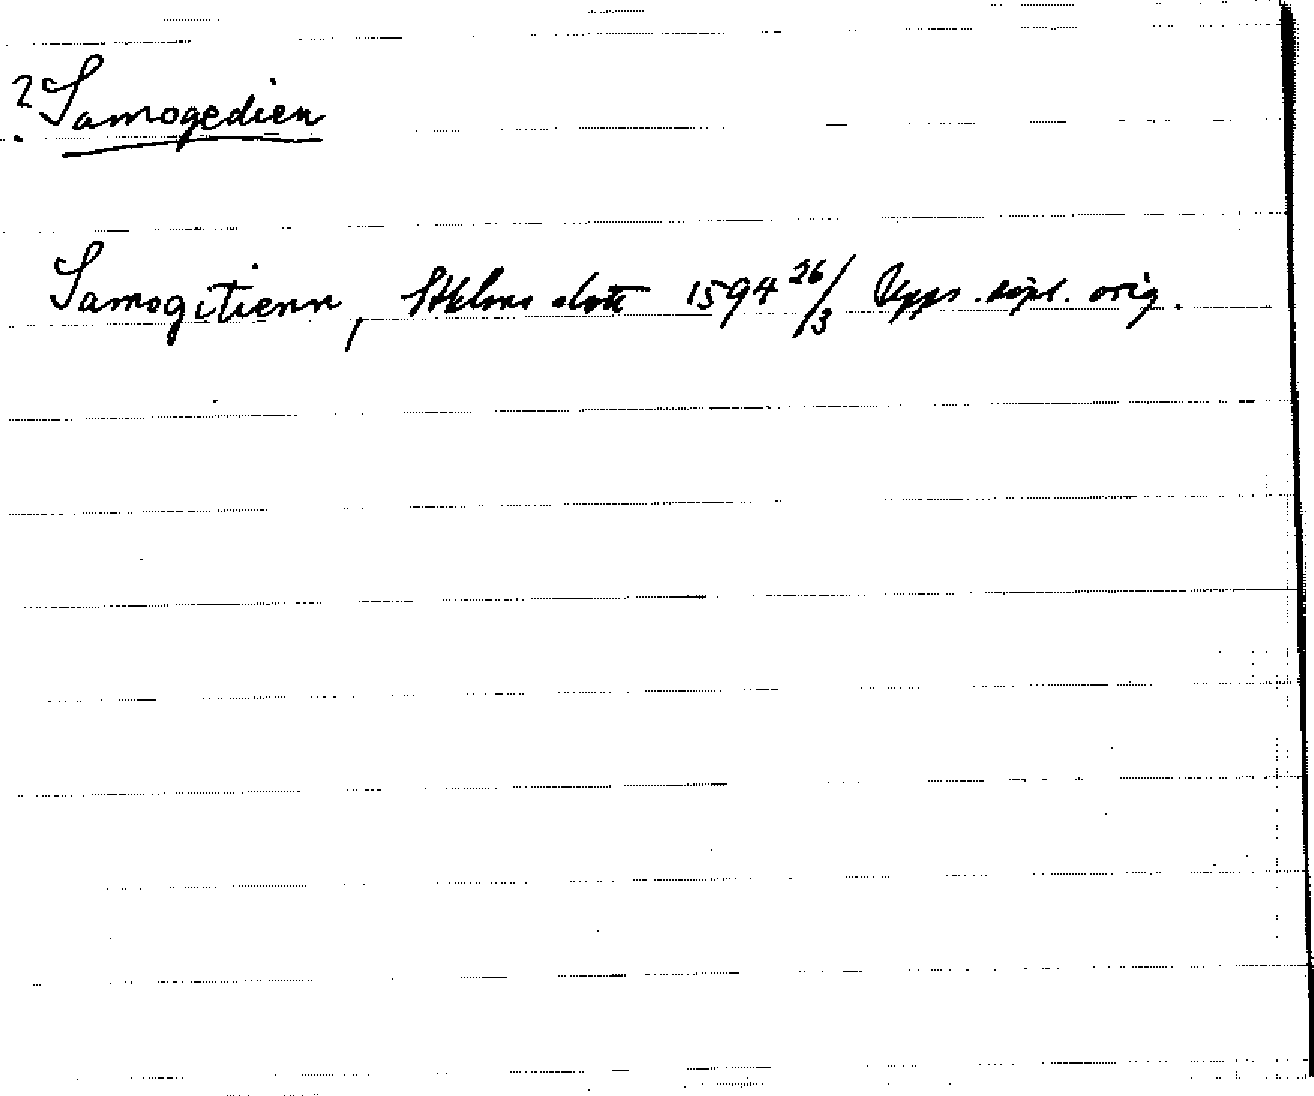 ? Samogedien
Samogitienn, Sthlms slott 1594 26/3 Upps. kopl. orig.